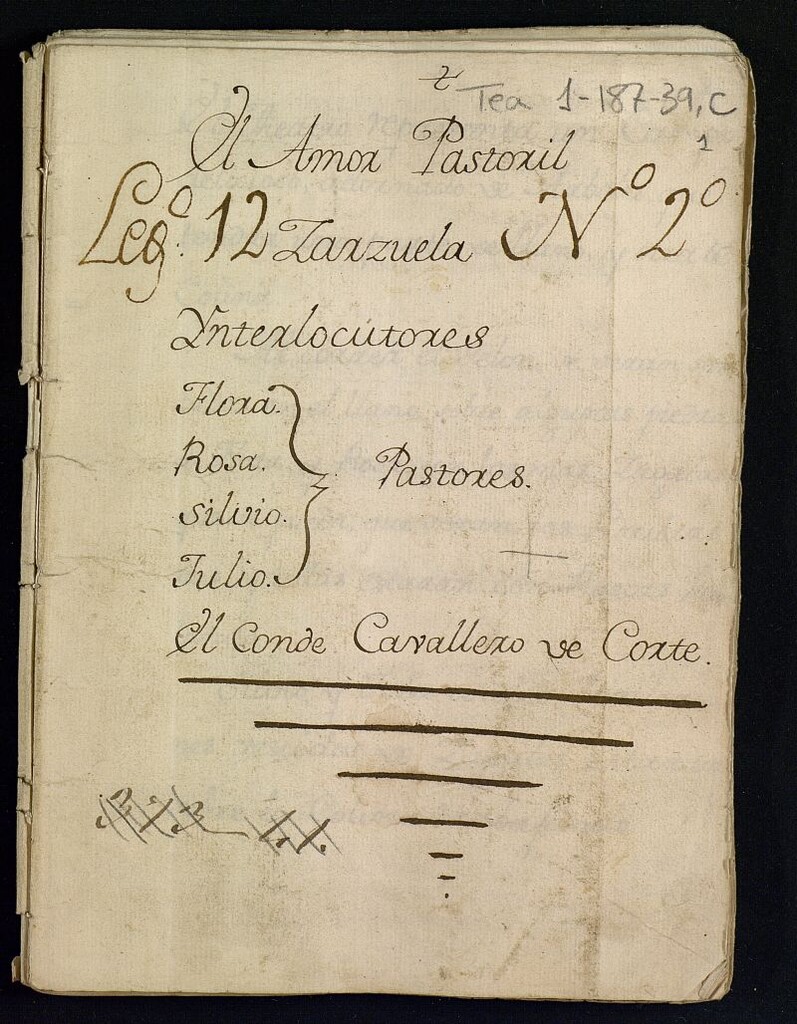 Tea 1-187-39, C
1
El Amor Pastoril
Leg.º 12 Zarzuela Nº 2º
Ynterlocutores
Flora.
Rosa.
Silvio.
Julio.
Pastores.
El Conde Cavallero de Corte.